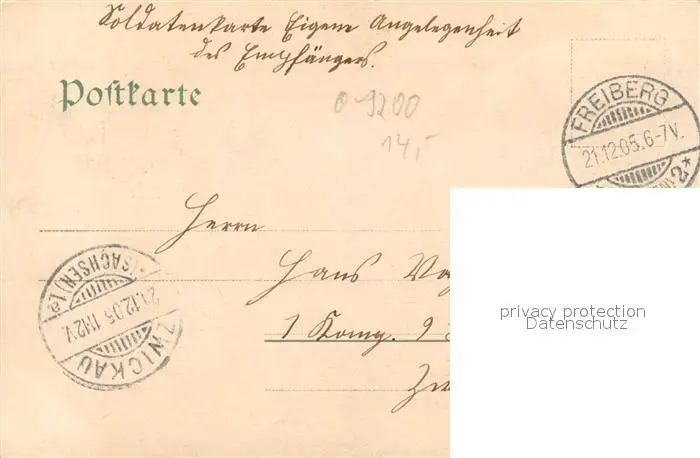 Soldatenkarte Eigene Angelegenheit
des Empfängers.
Postkarte
0 9200
14,-
FREIBERG
21.12.05.6-7V.
2*
Herrn
Hans
1 Komp. 9
(SACHSEN) 1e
21.12.05 11-12V.
ZWICKAU
privacy protection
Datenschutz